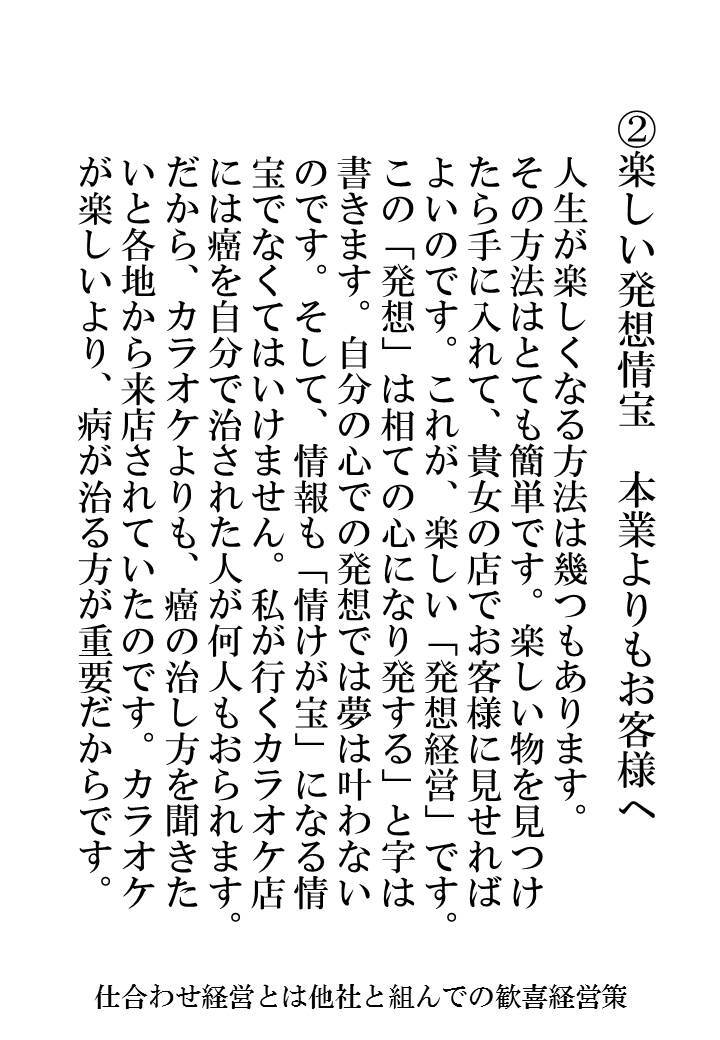 ②楽しい発想情宝　本業よりもお客様へ
人生が楽しくなる方法は幾つもあります。
その方法はとても簡単です。楽しい物を見つけ
たら手に入れて、貴女の店でお客様に見せれば
よいのです。これが、楽しい「発想経営」です。
この「発想」は相ての心になり発する」と字は
書きます。自分の心での発想では夢は叶わない
のです。そして、情報も「情けが宝」になる情
宝でなくてはいけません。私が行くカラオケ店
には癌を自分で治された人が何人もおられます。
だから、カラオケよりも、癌の治し方を聞きた
いと各地から来店されていたのです。カラオケ
が楽しいより、病が治る方が重要だからです。
仕合わせ経営とは他社と組んでの歓喜経営策